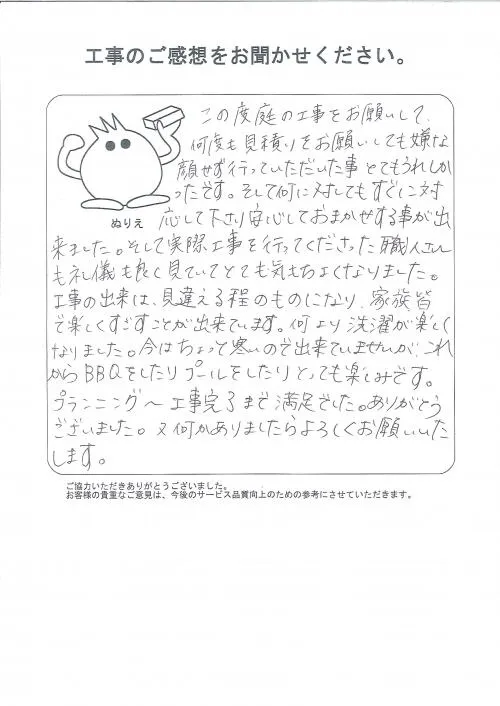 工事のご感想をお聞かせください。
この度庭の工事をお願いして、
何度も見積りをお願いしても嫌な
顔せず行っていただいた事とてもうれしか
ったです。そして何に対してもすぐに対
ぬりえ
応して下さり安心しておまかせする事が出
来ました。そして実際工事を行ってくださった職人さん
も礼儀も良く見ていてとても気もちよくなりました。
工事の出来は、見違える程のものになり、家族皆
で楽しくすごすことが出来ています。何より洗濯が楽しく
なりました。今はちょっと寒いので出来ていませんが、これ
からBBQをしたりプールをしたりとっても楽しみです。
プランニング〜工事完了まで満足でした。ありがとう
ございました。又何かありましたらよろしくお願いいた
します。
ご協力いただきありがとうございました。
お客様の貴重なご意見は、今後のサービス品質向上のための参考にさせていただきます。